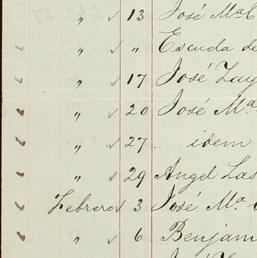 " ✓ 13 José Mª C
" ✓ " Escuda de
" ✓ 17 José Zay
" ✓ 20 José Mª
" ✓ 27. idem
" ✓ 29 Angel Las
Febrero ✓ 3 José Mª
" ✓ 6 Benjam